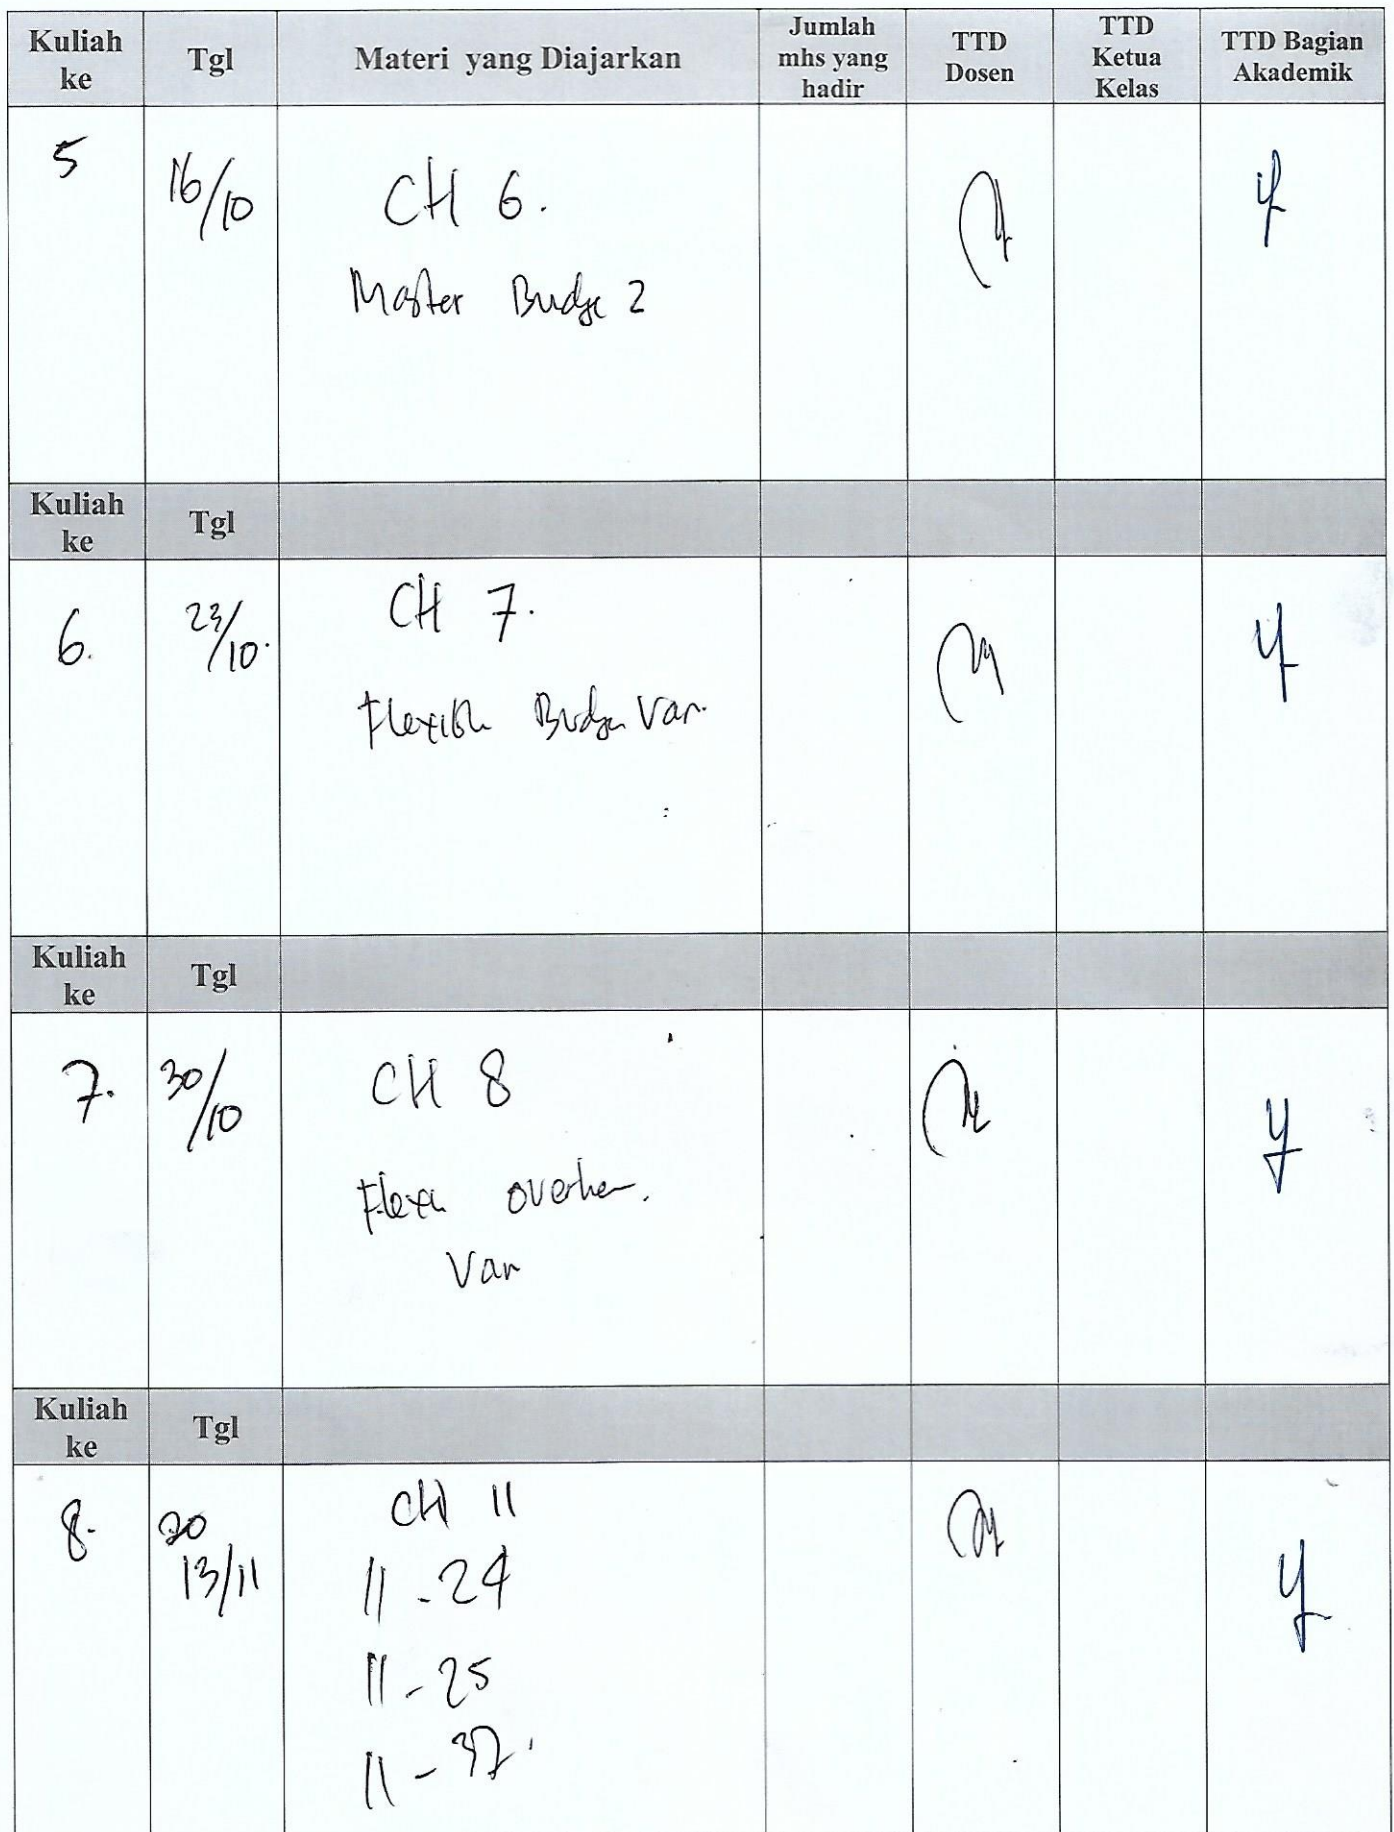 Kuliah ke Tgl Materi yang Diajarkan Jumlah mhs yang hadir TTD Dosen TTD Ketua Kelas TTD Bagian Akademik
5 16/10 CH 6.
Master Budge 2
Kuliah ke Tgl
6. 23/10. CH 7.
Budge Var.
Kuliah ke Tgl
7. 30/10 CH 8
Var
Kuliah ke Tgl
8. CH 11
13/11 11-24
11-25
11-37.